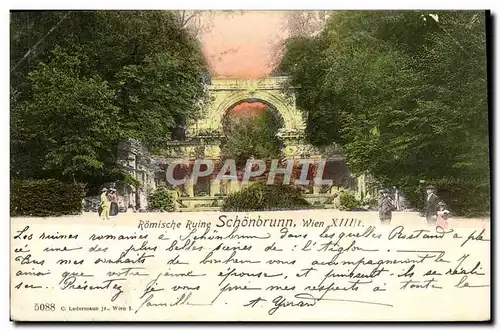 CPArama
Römische Ruine Schönbrunn, Wien XIII/1.
Les ruines romaine à Schönbrunn dans lesquelles Rostand a pla
cé une des plus belles scènes de "l'Aiglon"
Tous mes souhaits de bonheur vous accompagneront le
ainsi que votre jeune épouse, et puissent-ils se réali
ser. Présentez, je vous prie mes respects à toute la
famille
5088 C. Ledermann jr., Wien I.